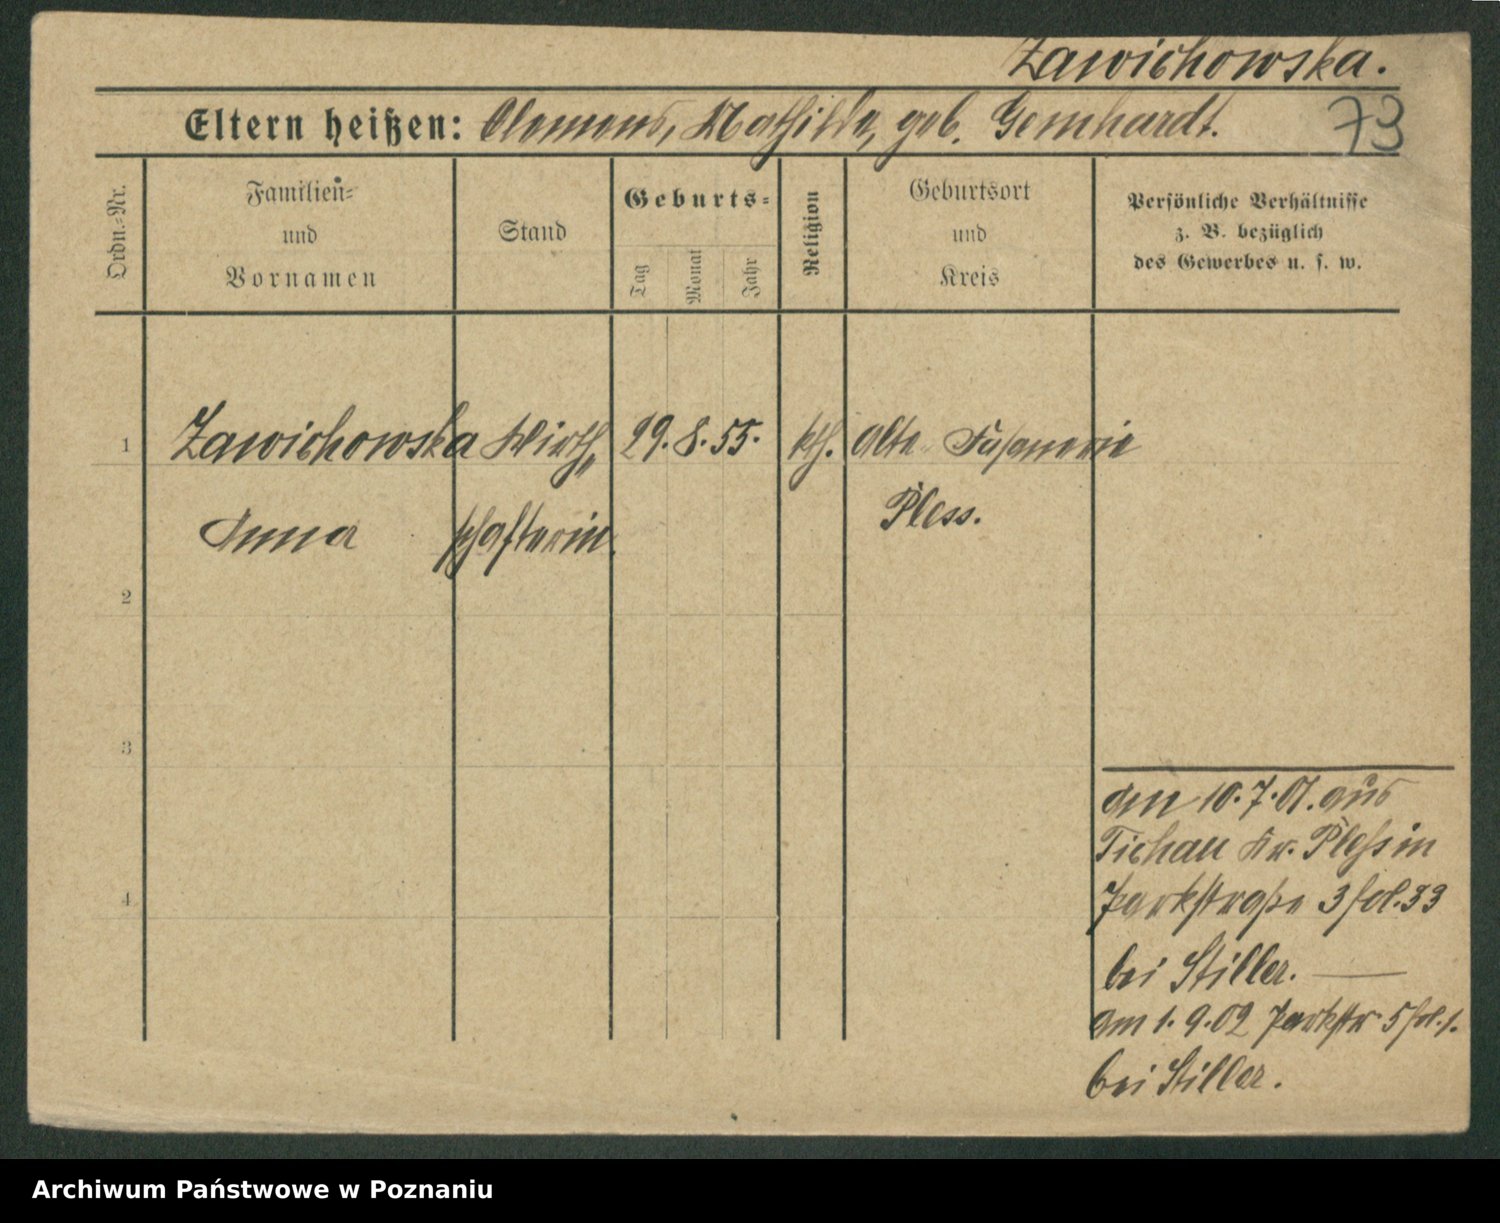 Zawichowska.
Eltern heißen: Clemens, Mathilde, geb. Gemhardt.
73
Ordn.-Nr.
Familien-
und
Vornamen
Stand
Geburts-
Tag
Monat
Jahr
Religion
Geburtsort
und
Kreis
Persönliche Verhältnisse
z. B. bezüglich
des Gewerbes u. s. w.
1 Zawichowska Wirth„ 29. 8. 55. kth. Alte Fasanerie
Anna schafterin. Pless.
2
3
4
am 10.7.01. aus
Tichau Kr. Pless in
Parkstraße 3 fol. 33
bei Stiller.
am 1.9.02 Parkstr. 5 fol. 1.
bei Stiller.
Archiwum Państwowe w Poznaniu